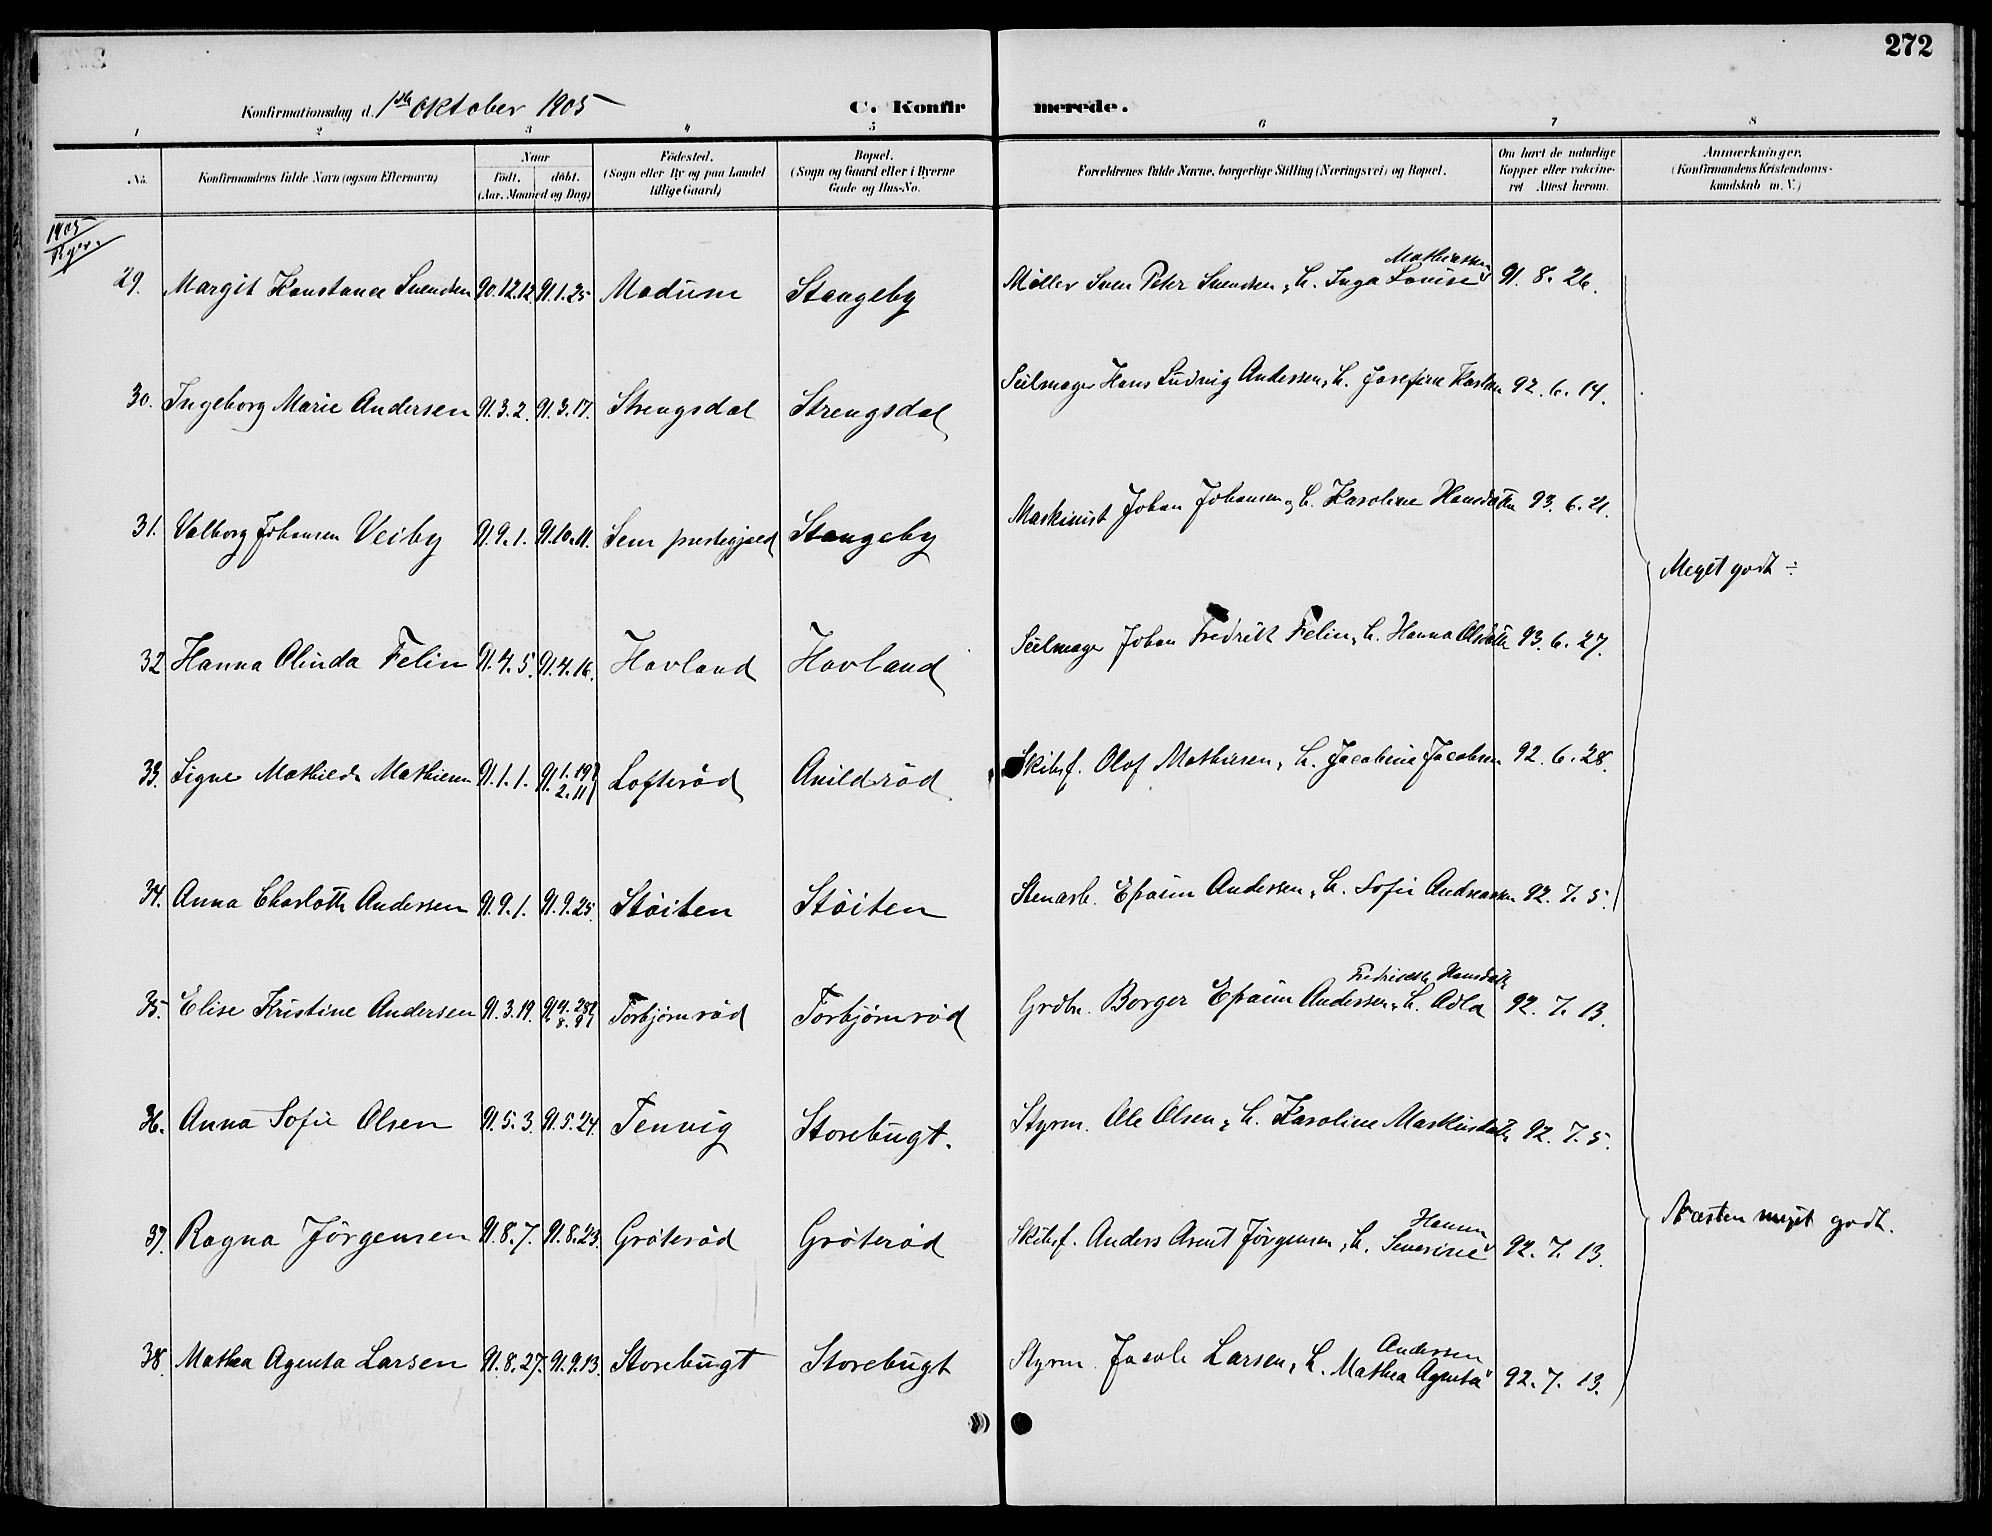 272
Konfirmationsdag d. 1ste Oktober 1905
C. Konfirmerede.
1 2 3 4 5 6 7 8
No.
Konfirmandens fulde Navn (ogsaa Efternavn)
Naar
födt. döbt.
(Aar, Maaned og Dag)
Födested.
(Sogn eller By og paa Landet
tillige Gaard)
Bopæl.
(Sogn og Gaard eller i Byerne
Gade og Hus-No.
Forældrenes fulde Navne, borgerlige Stilling (Næringsvei) og Bopæl.
Om havt de naturlige
Kopper eller vakcine-
ret Attest herom.
Anmærkninger.
(Konfirmandens Kristendoms-
kundskab m. V.)
1905
29. Margit Konstance Svendsen 90.12.12. 91.1.25 Madum Stangeby Møller Sven Peter Svendsen, h. Inga Louise Mathiassen 91. 8. 26.
30. Ingeborg Marie Andersen 91.3.2. 91.3.17. Strengsdal Strengsdal Seilmager Hans Ludvig Andersen, h. Josefine Karlsen 92. 6. 14.
31. Valborg Johansen Veiby 91.9.1. 91.10.11. Sem prestegjæld Stangeby Maskinist Johan Johansen, h. Karoline Hansdatter 93. 6. 21.
Meget godt ÷
32 Hanna Olinda Felin 91.4.5. 91.4.16. Havland Havland Seilmager Johan Fredrik Felin, h. Hanna Olsdatter 93. 6. 27.
33. Signe Mathilde Mathisen 91.1.1. 91. 1.19 2.11 Lofterød Anildrød Skibsf. Olof Mathisen, h. Jacobine Jacobsen 92. 6. 28.
34. Anna Charlotte Andersen 91.9.1. 91.9.25. Støiten Støiten Stenarb. Efraim Andersen, h. Sofie Andreassen 92. 7. 5.
35. Elise Kristine Andersen 91.3.19. 91. 4.28 8.9 Torbjørnrød Torbjørnrød Grdbr. Borger Efraim Andersen, h. Adla Fredrikke Hansdatter 92. 7. 13.
36. Anna Sofie Olsen 91.5.3. 91.5.24. Tenvig Storebugt. Styrm. Ole Olsen, h. Karoline 92. 7. 5.
37. Ragna Jörgensen 91.8.7. 91.8.23. Grøterød Grøterød Skibsf. Anders Arent Jörgensen, h. Severine Hansen 92. 7. 13.
Næsten meget godt.
38. Mathea Agenta Larsen 91.8.27. 91.9.13. Storebugt Storebugt Styrm. Jacob Larsen, h. Mathea Agneta Andersen 92. 7. 13.